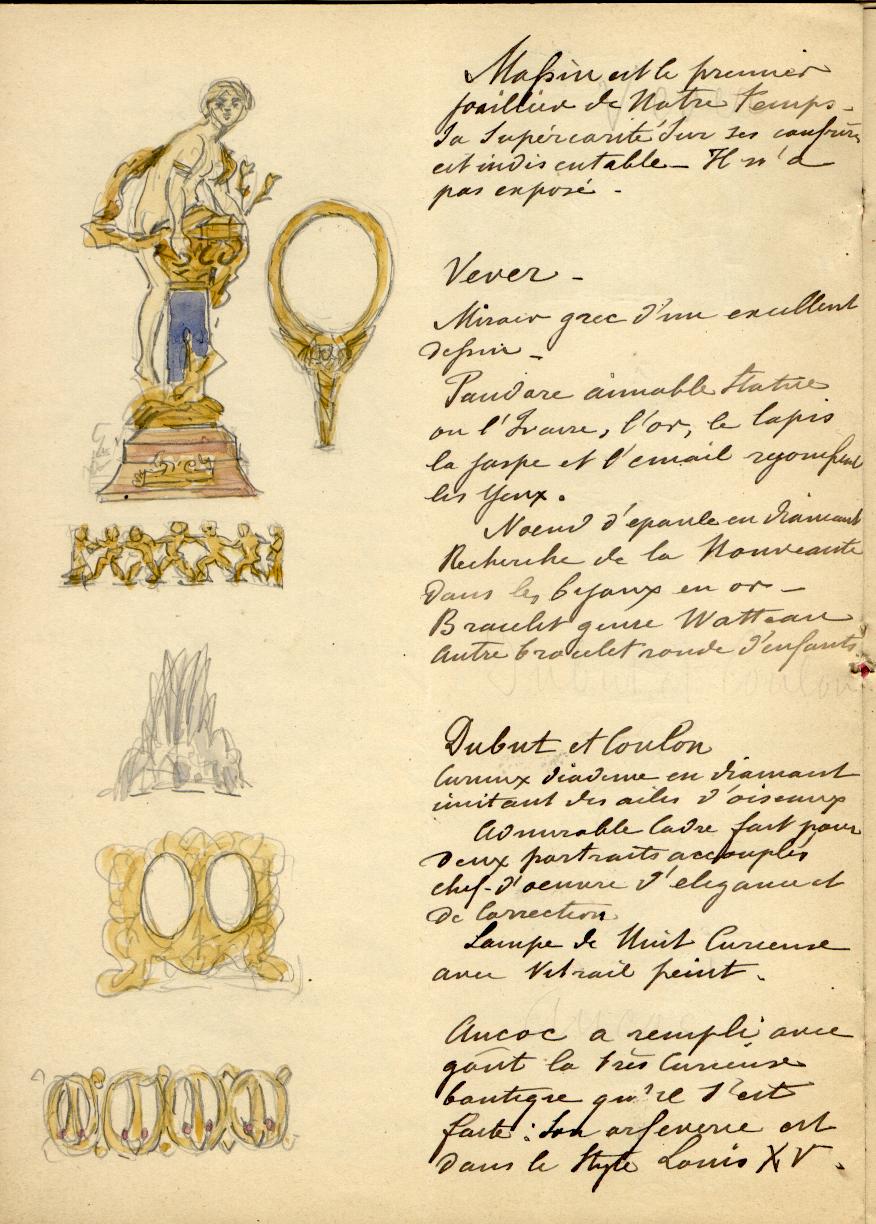 Massin est le premier
joaillier de Notre temps -
Sa Supériorité Sur ses confrères
est indiscutable - Il n'a
pas exposé -
Vever -
Miroir grec d'un excellent
dessin -
Pandore aimable Statue
ou l'Ivoire, l'or, le lapis
la jaspe et l'émail
les Yeux.
Noeud d'épaule en diamant
Recherche de la Nouveauté
dans les bijoux en or -
Bracelet genre Watteau
Autre bracelet ronde d'enfants
Dubut et Coulon
Curieux diademe en diamant
imitant des ailes d'oiseaux
Admirable Cadre fait pour
deux portraits accouplés
chef-d'oeuvre d'élégance et
de Correction
Lampe de Nuit Curieuse
avec Vitrail peint.
Aucoc a rempli avec
goût la très Curieuse
boutique qu'il s'est
faite : Son orfeverie est
dans le Style Louis XV.